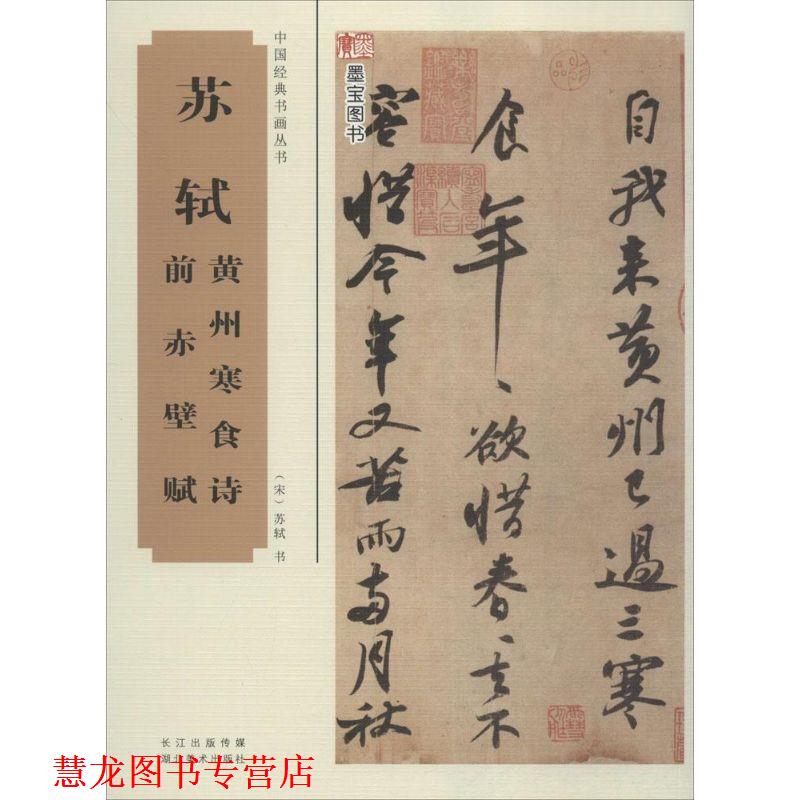 中国经典书画丛书
苏轼
黄州寒食诗
前赤壁赋
（宋）苏轼 书
墨宝图书
自我来黄州已過三寒
食年〻欲惜春〻去不
容惜今年又苦雨两月秋
长江出版传媒
湖北美术出版社
慧龙图书专营店